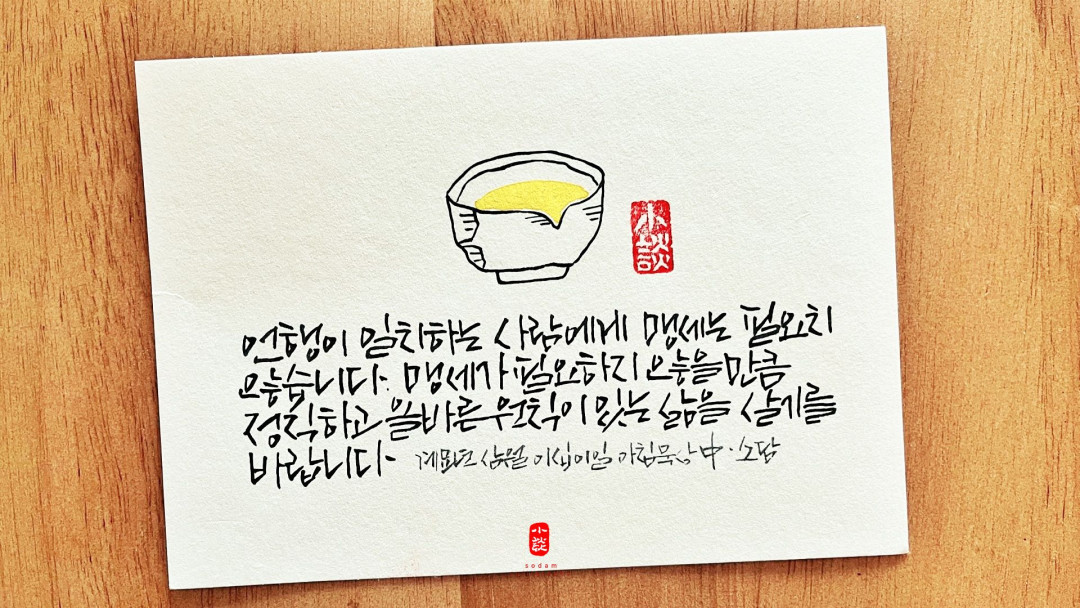 小談
언행이 일치하는 사람에게 맹세는 필요치
않습니다. 맹세가 필요하지 않을만큼
정직하고 올바른 원칙이 있는 삶을 살기를
바랍니다.
계묘년 삼월 이십이일 아침묵상 中. 소담
小談
sodam